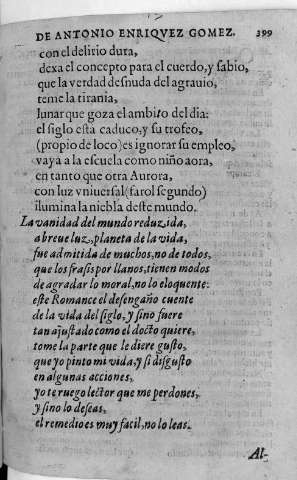 DE ANTONIO ENRIQVEZ GOMEZ. 399
con el delirio dura,
dexa el concepto para el cuerdo, y sabio,
que la verdad desnuda del agrauio,
teme la tirania,
lunar que goza el ambito del dia:
el siglo està caduco, y su trofeo,
(propio de loco) es ignorar su empleo,
vaya a la escuela como niño aora,
en tanto que otra Aurora,
con luz vniuersal (farol segundo)
ilumina la niebla deste mundo.
La vanidad del mundo reduzida,
a breue luz, planeta de la vida,
fue admitida de muchos, no de todos,
que los frasis por llanos, tienen modos
de agradar lo moral, no lo eloquente:
este Romance el desengaño cuente
de la vida del siglo, y sino fuere
tan ajustado como el docto quiere,
tome la parte que le diere gusto,
que yo pinto mi vida, y si disgusto
en algunas acciones,
yo te ruego lector que me perdones,
y sino lo deseas,
el remedio es muy facil, no lo leas.
Al-